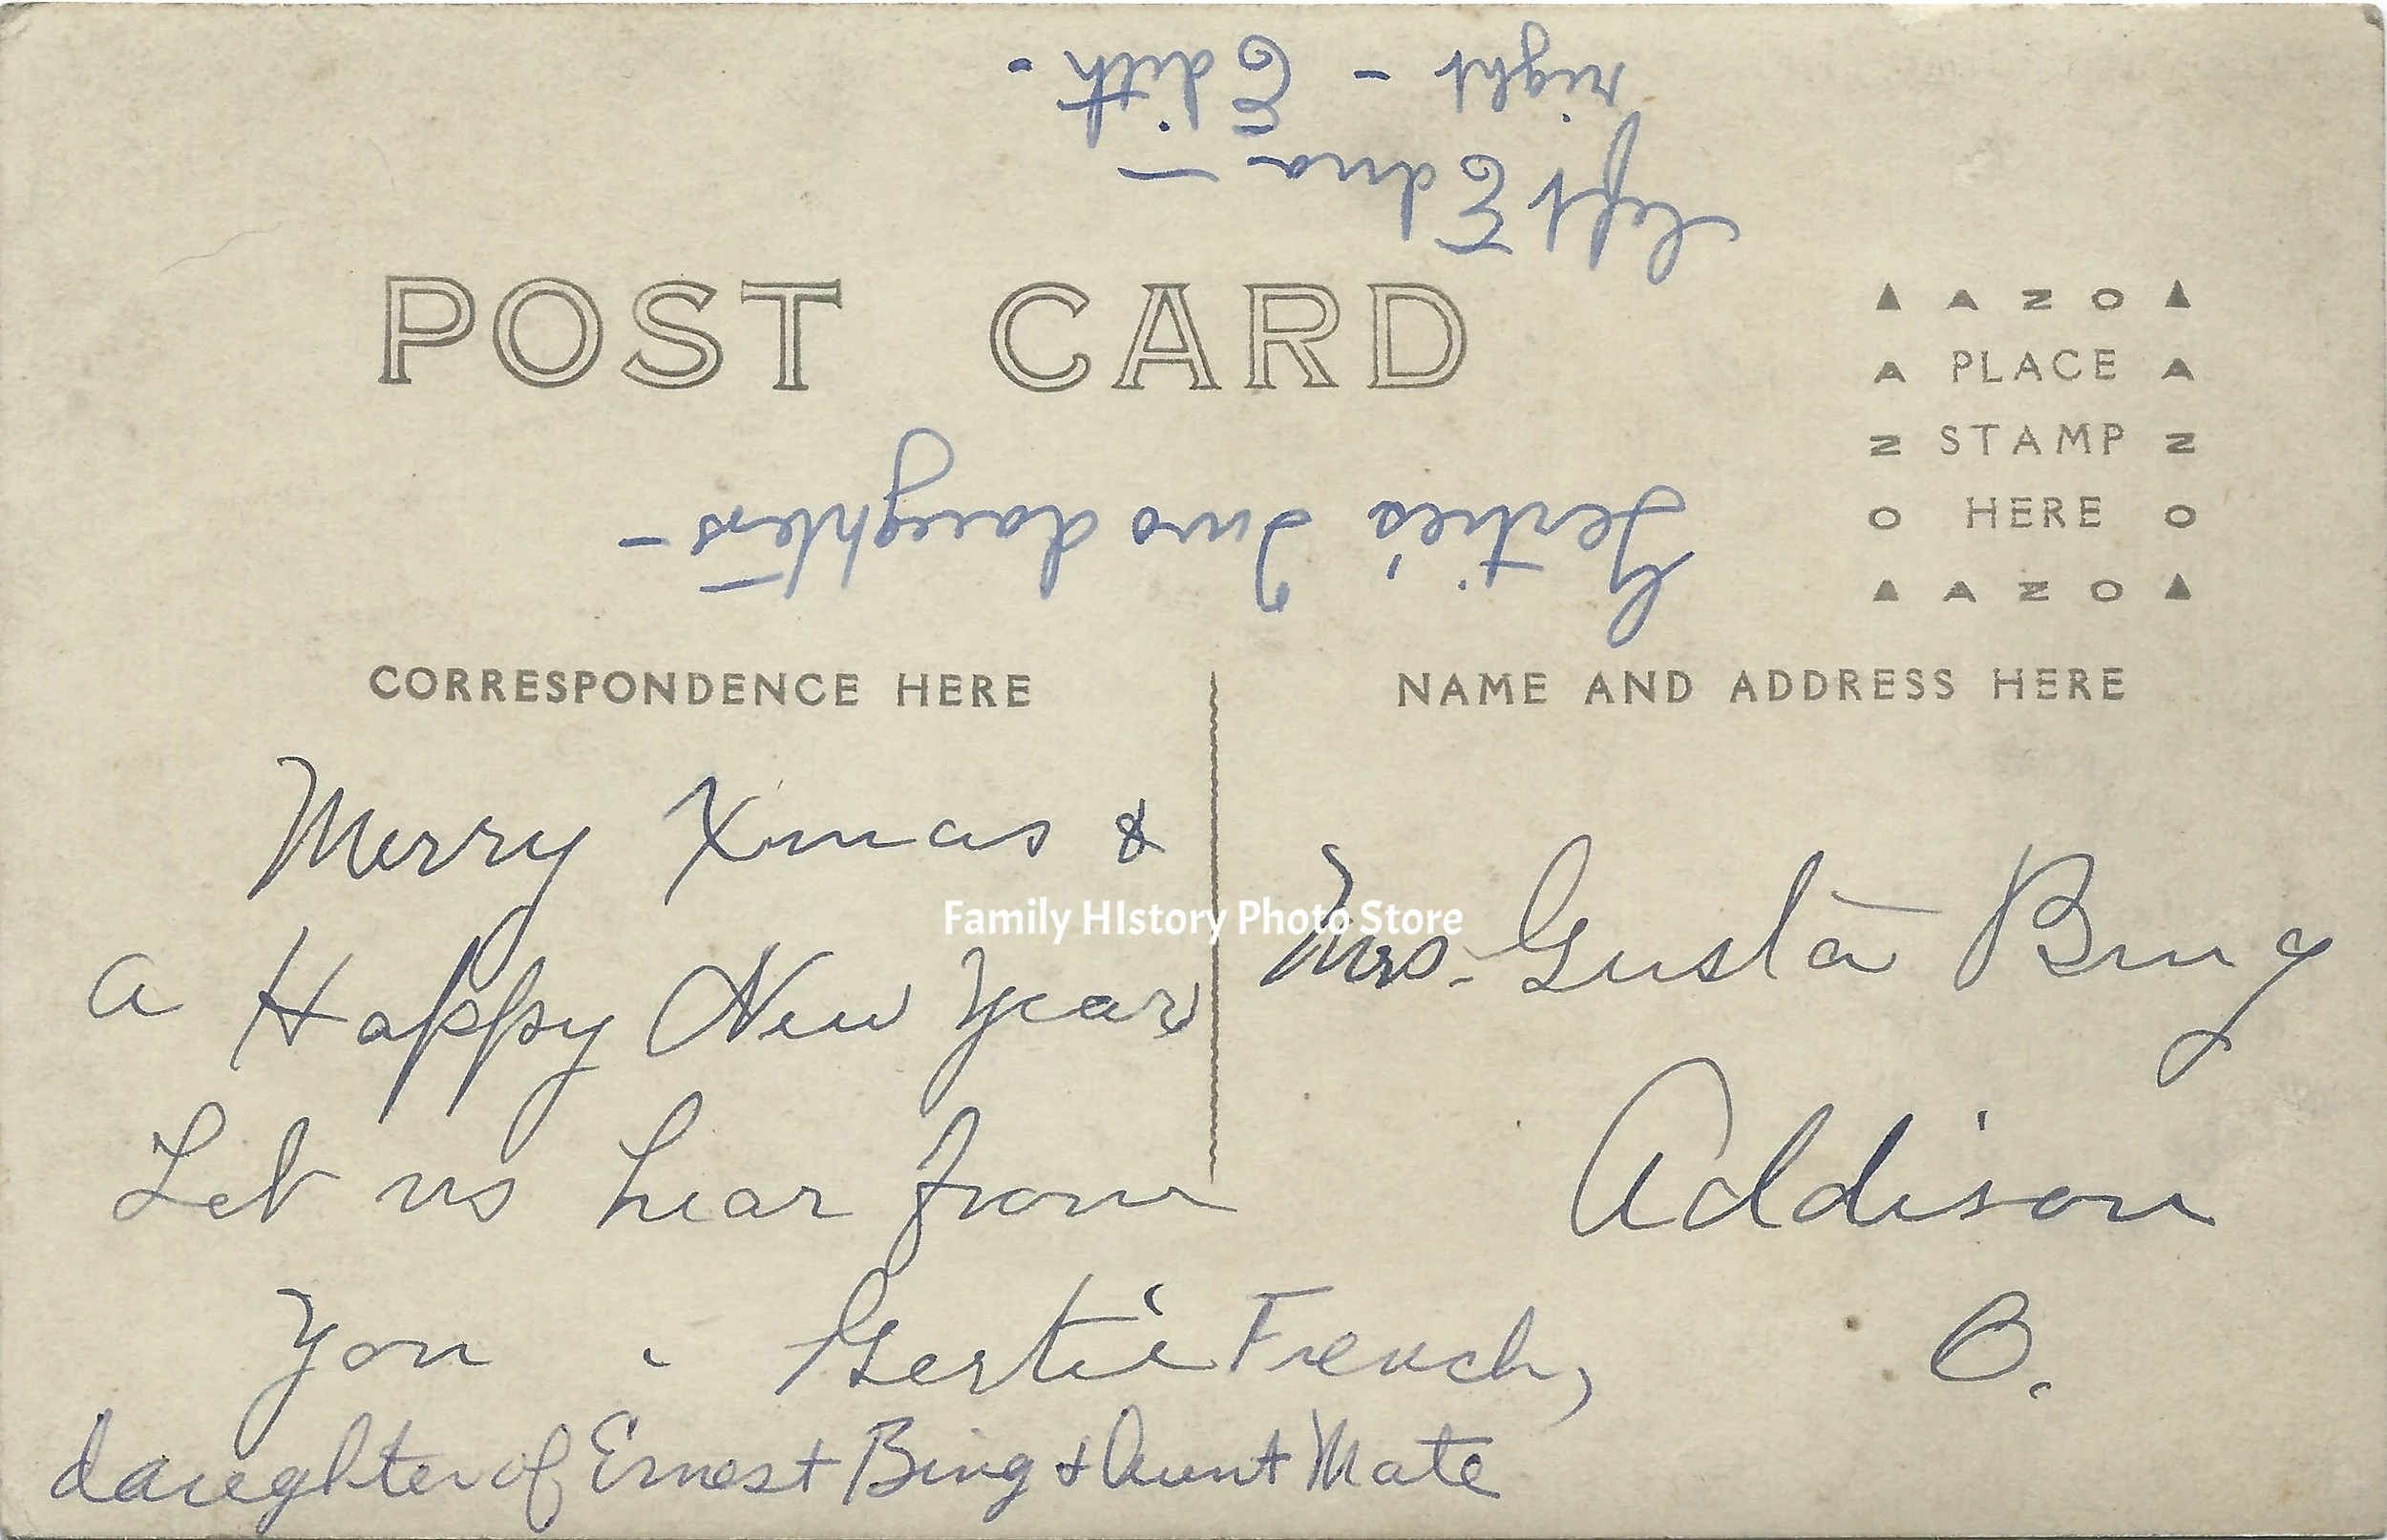 Gertie's Two daughters -
left Edna -
right - Edith.
POST CARD
▲ A Z O ▲
A PLACE A
Z STAMP Z
O HERE O
▲ A Z O ▲
CORRESPONDENCE HERE
NAME AND ADDRESS HERE
Merry Xmas &
a Happy New Year
Let us hear from
you . Gertie French,
daughter of Ernest Bing & Aunt Mate
Mrs. Gusta Bing
Addison
O.
Family HIstory Photo Store